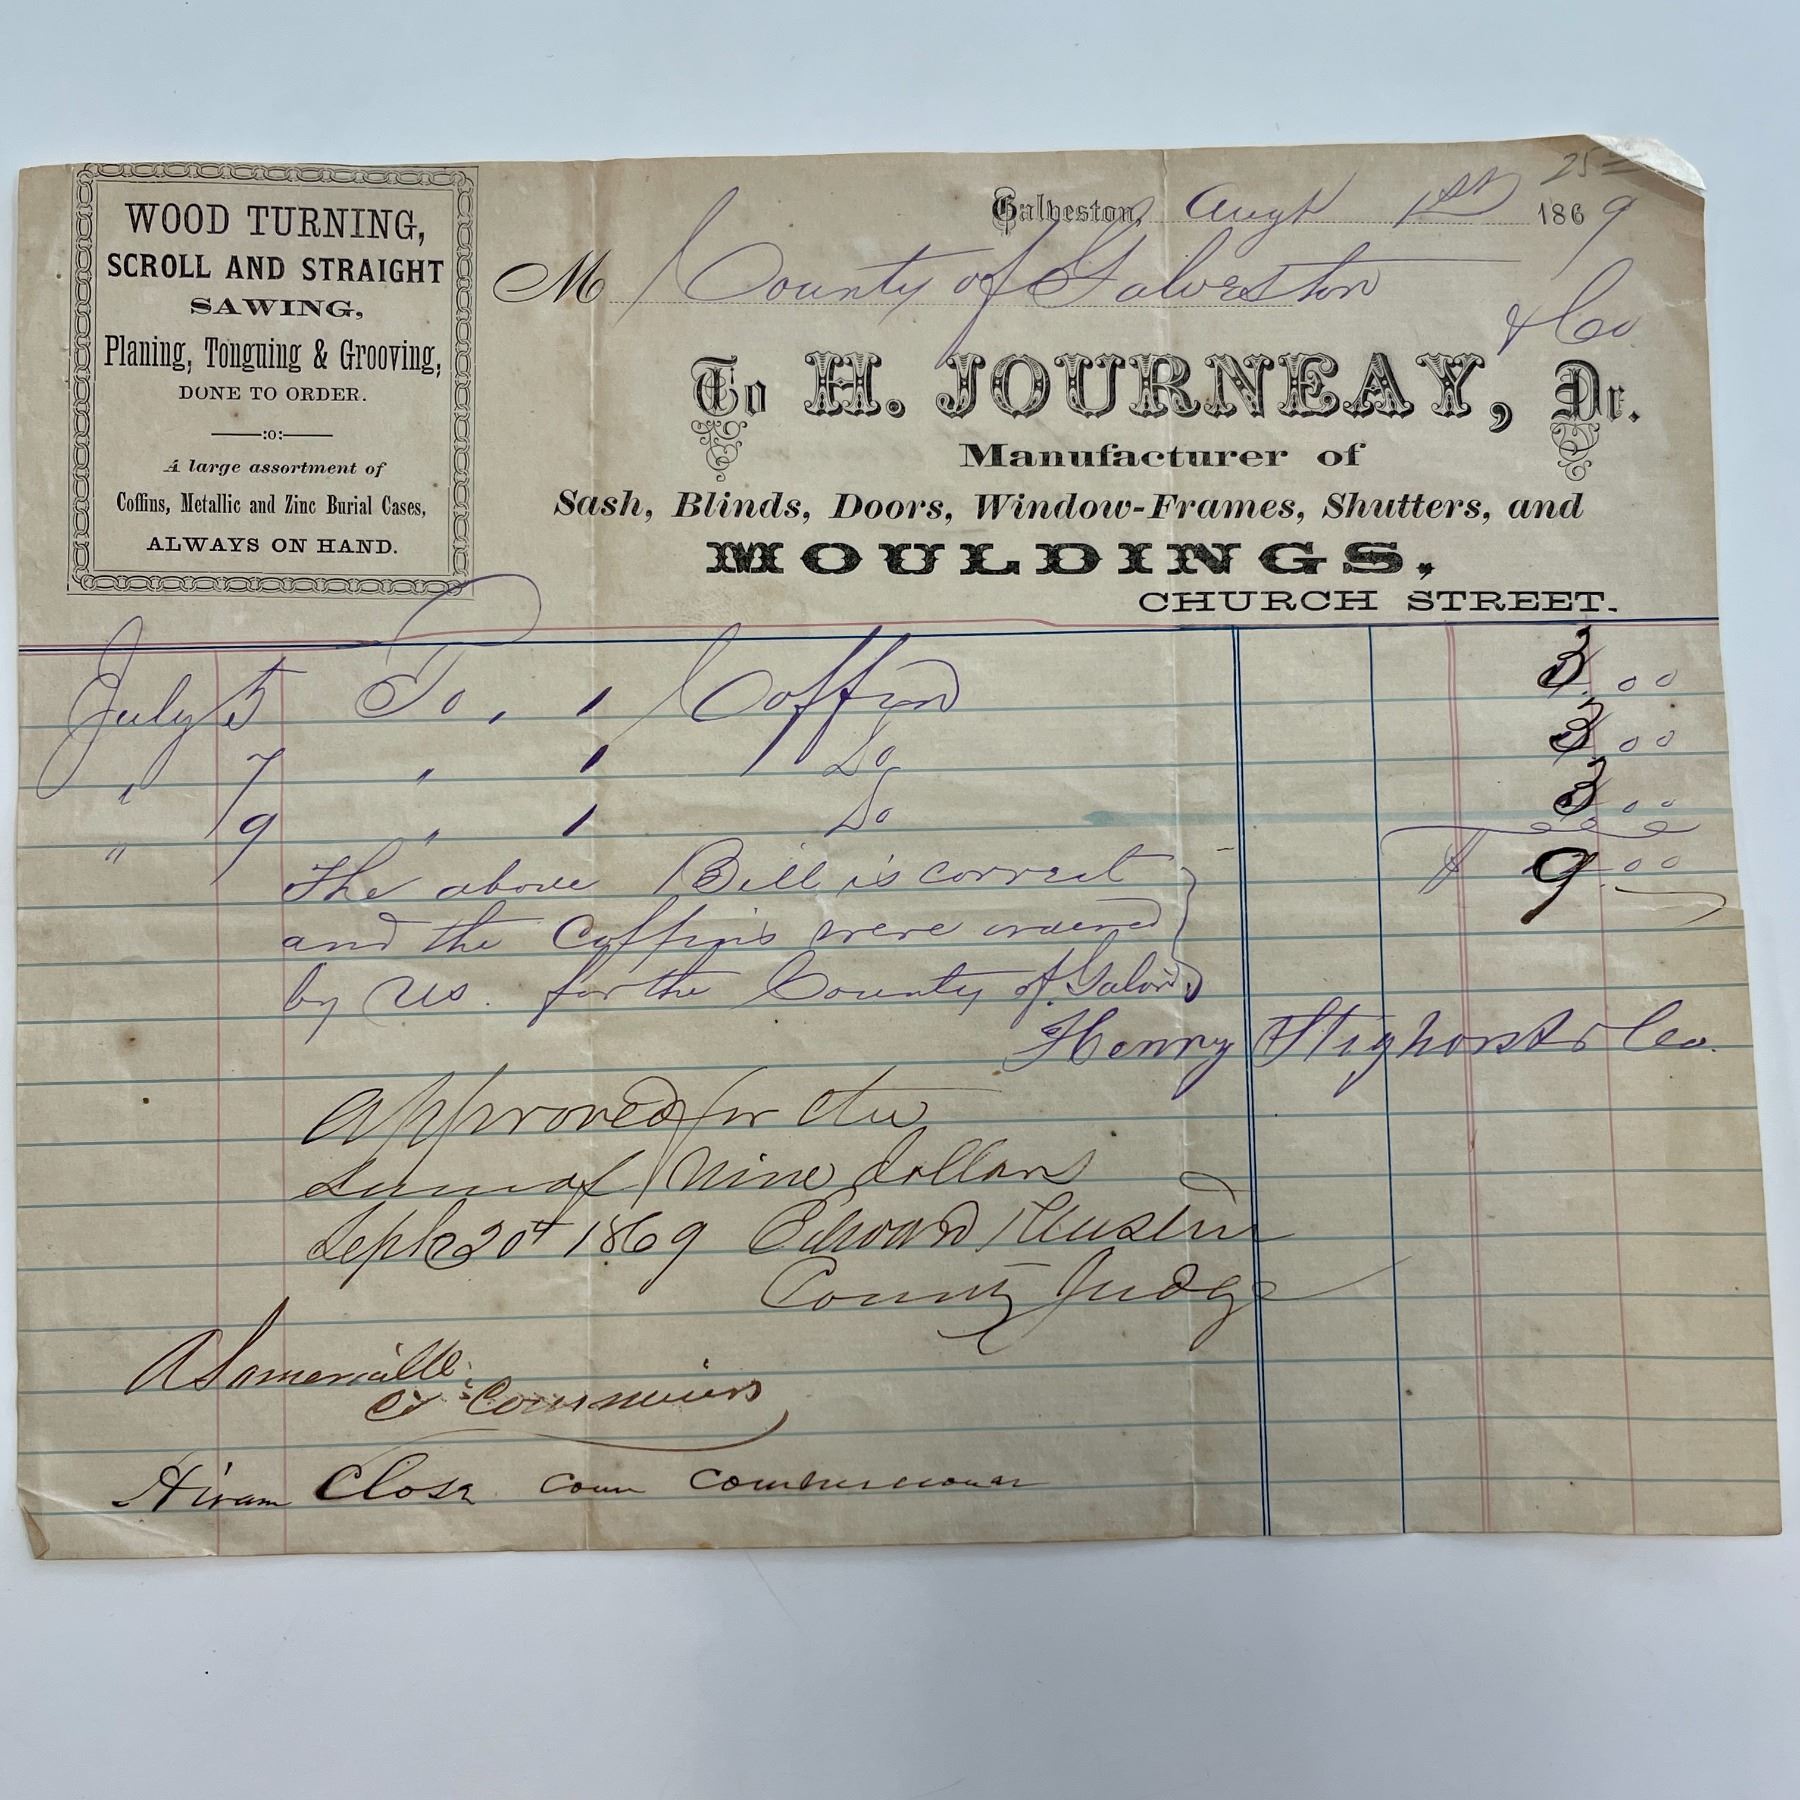 WOOD TURNING,
SCROLL AND STRAIGHT
SAWING,
Planing, Tonguing & Grooving,
DONE TO ORDER.
:o:
A large assortment of
Coffins, Metallic and Zinc Burial Cases,
ALWAYS ON HAND.
25 00
Galveston, Augt 1st 1869
M County of Galveston
& Co
To H. JOURNEAY, Dr.
Manufacturer of
Sash, Blinds, Doors, Window-Frames, Shutters, and
MOULDINGS,
CHURCH STREET.
July 5 To, 1 Coffin 3.00
" 7 " 1 Do 3.00
" 9 " 1 Do 3.00
$ 9.00
The above Bill is correct
and the Coffins were ordered
by us. for the County of
Henry & Co.
approved for the
sum of Nine dollars
Sept 20t 1869 Edward
County Judge
A Somerville
Hiram Close Coun Commissioner